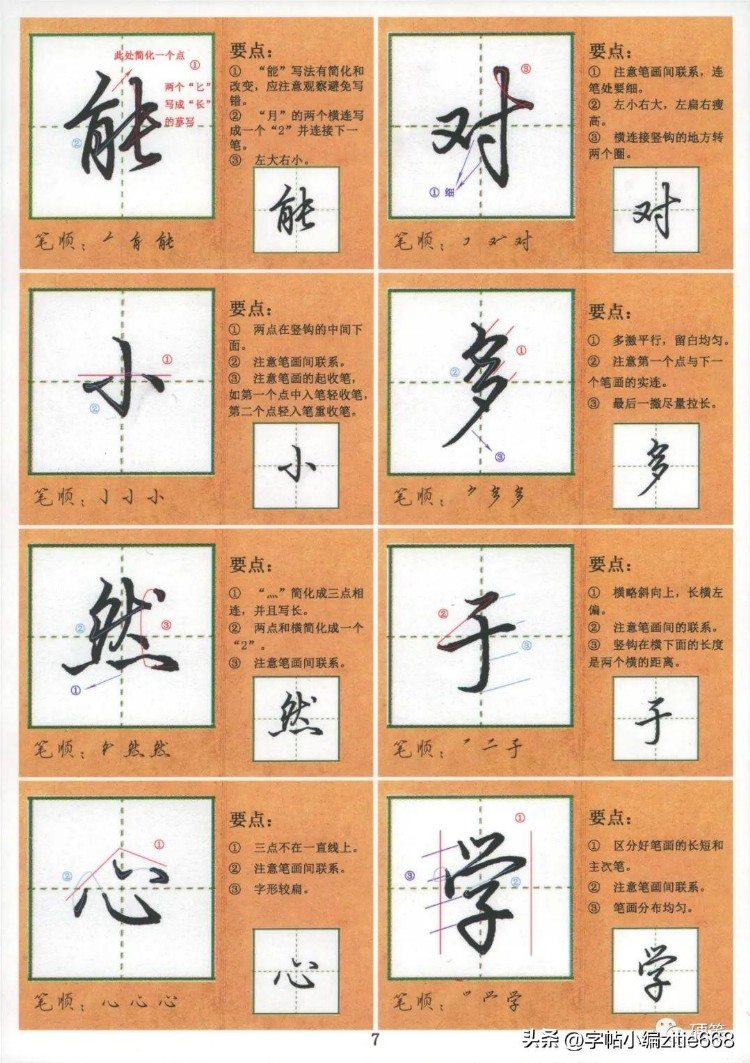 此处简化一个点
①
两个“匕”
写成“长”
的草写
②
能
要点：
① “能”写法有简化和
改变，应注意观察避免写
错。
② “月”的两个横连写
成一个“2”并连接下一
笔。
③ 左大右小。
能
笔顺：
能
③
对
① 细
要点：
① 注意笔画间联系，连
笔处要细。
② 左小右大，左扁右瘦
高。
③ 横连接竖钩的地方转
两个圈。
对
笔顺：
对
①
小
②
要点：
① 两点在竖钩的中间下
面。
② 注意笔画间联系。
③ 注意笔画的起收笔，
如第一个点中入笔轻收笔，
第二个点轻入笔重收笔。
小
笔顺：
小
①
②
多
③
要点：
① 多撇平行，留白均匀。
② 注意第一个点与下一
个笔画的实连。
③ 最后一撇尽量拉长。
多
笔顺：
多
②
然
③
①
要点：
① “灬”简化成三点相
连，并且写长。
② 两点和横简化成一个
“2”。
③ 注意笔画间联系。
然
笔顺：
然 然
②
于
③
要点：
① 横略斜向上，长横左
偏。
② 注意笔画间的联系。
③ 竖钩在横下面的长度
是两个横的距离。
于
笔顺：
二 于
①
②
心
要点：
① 三点不在一直线上。
② 注意笔画间联系。
③ 字形较扁。
心
笔顺：心 心 心
①
③
②
学
要点：
① 区分好笔画的长短和
主次笔。
② 注意笔画间联系。
③ 笔画分布均匀。
学
笔顺：
学
7
硬笔
头条 @字帖小编zitie668